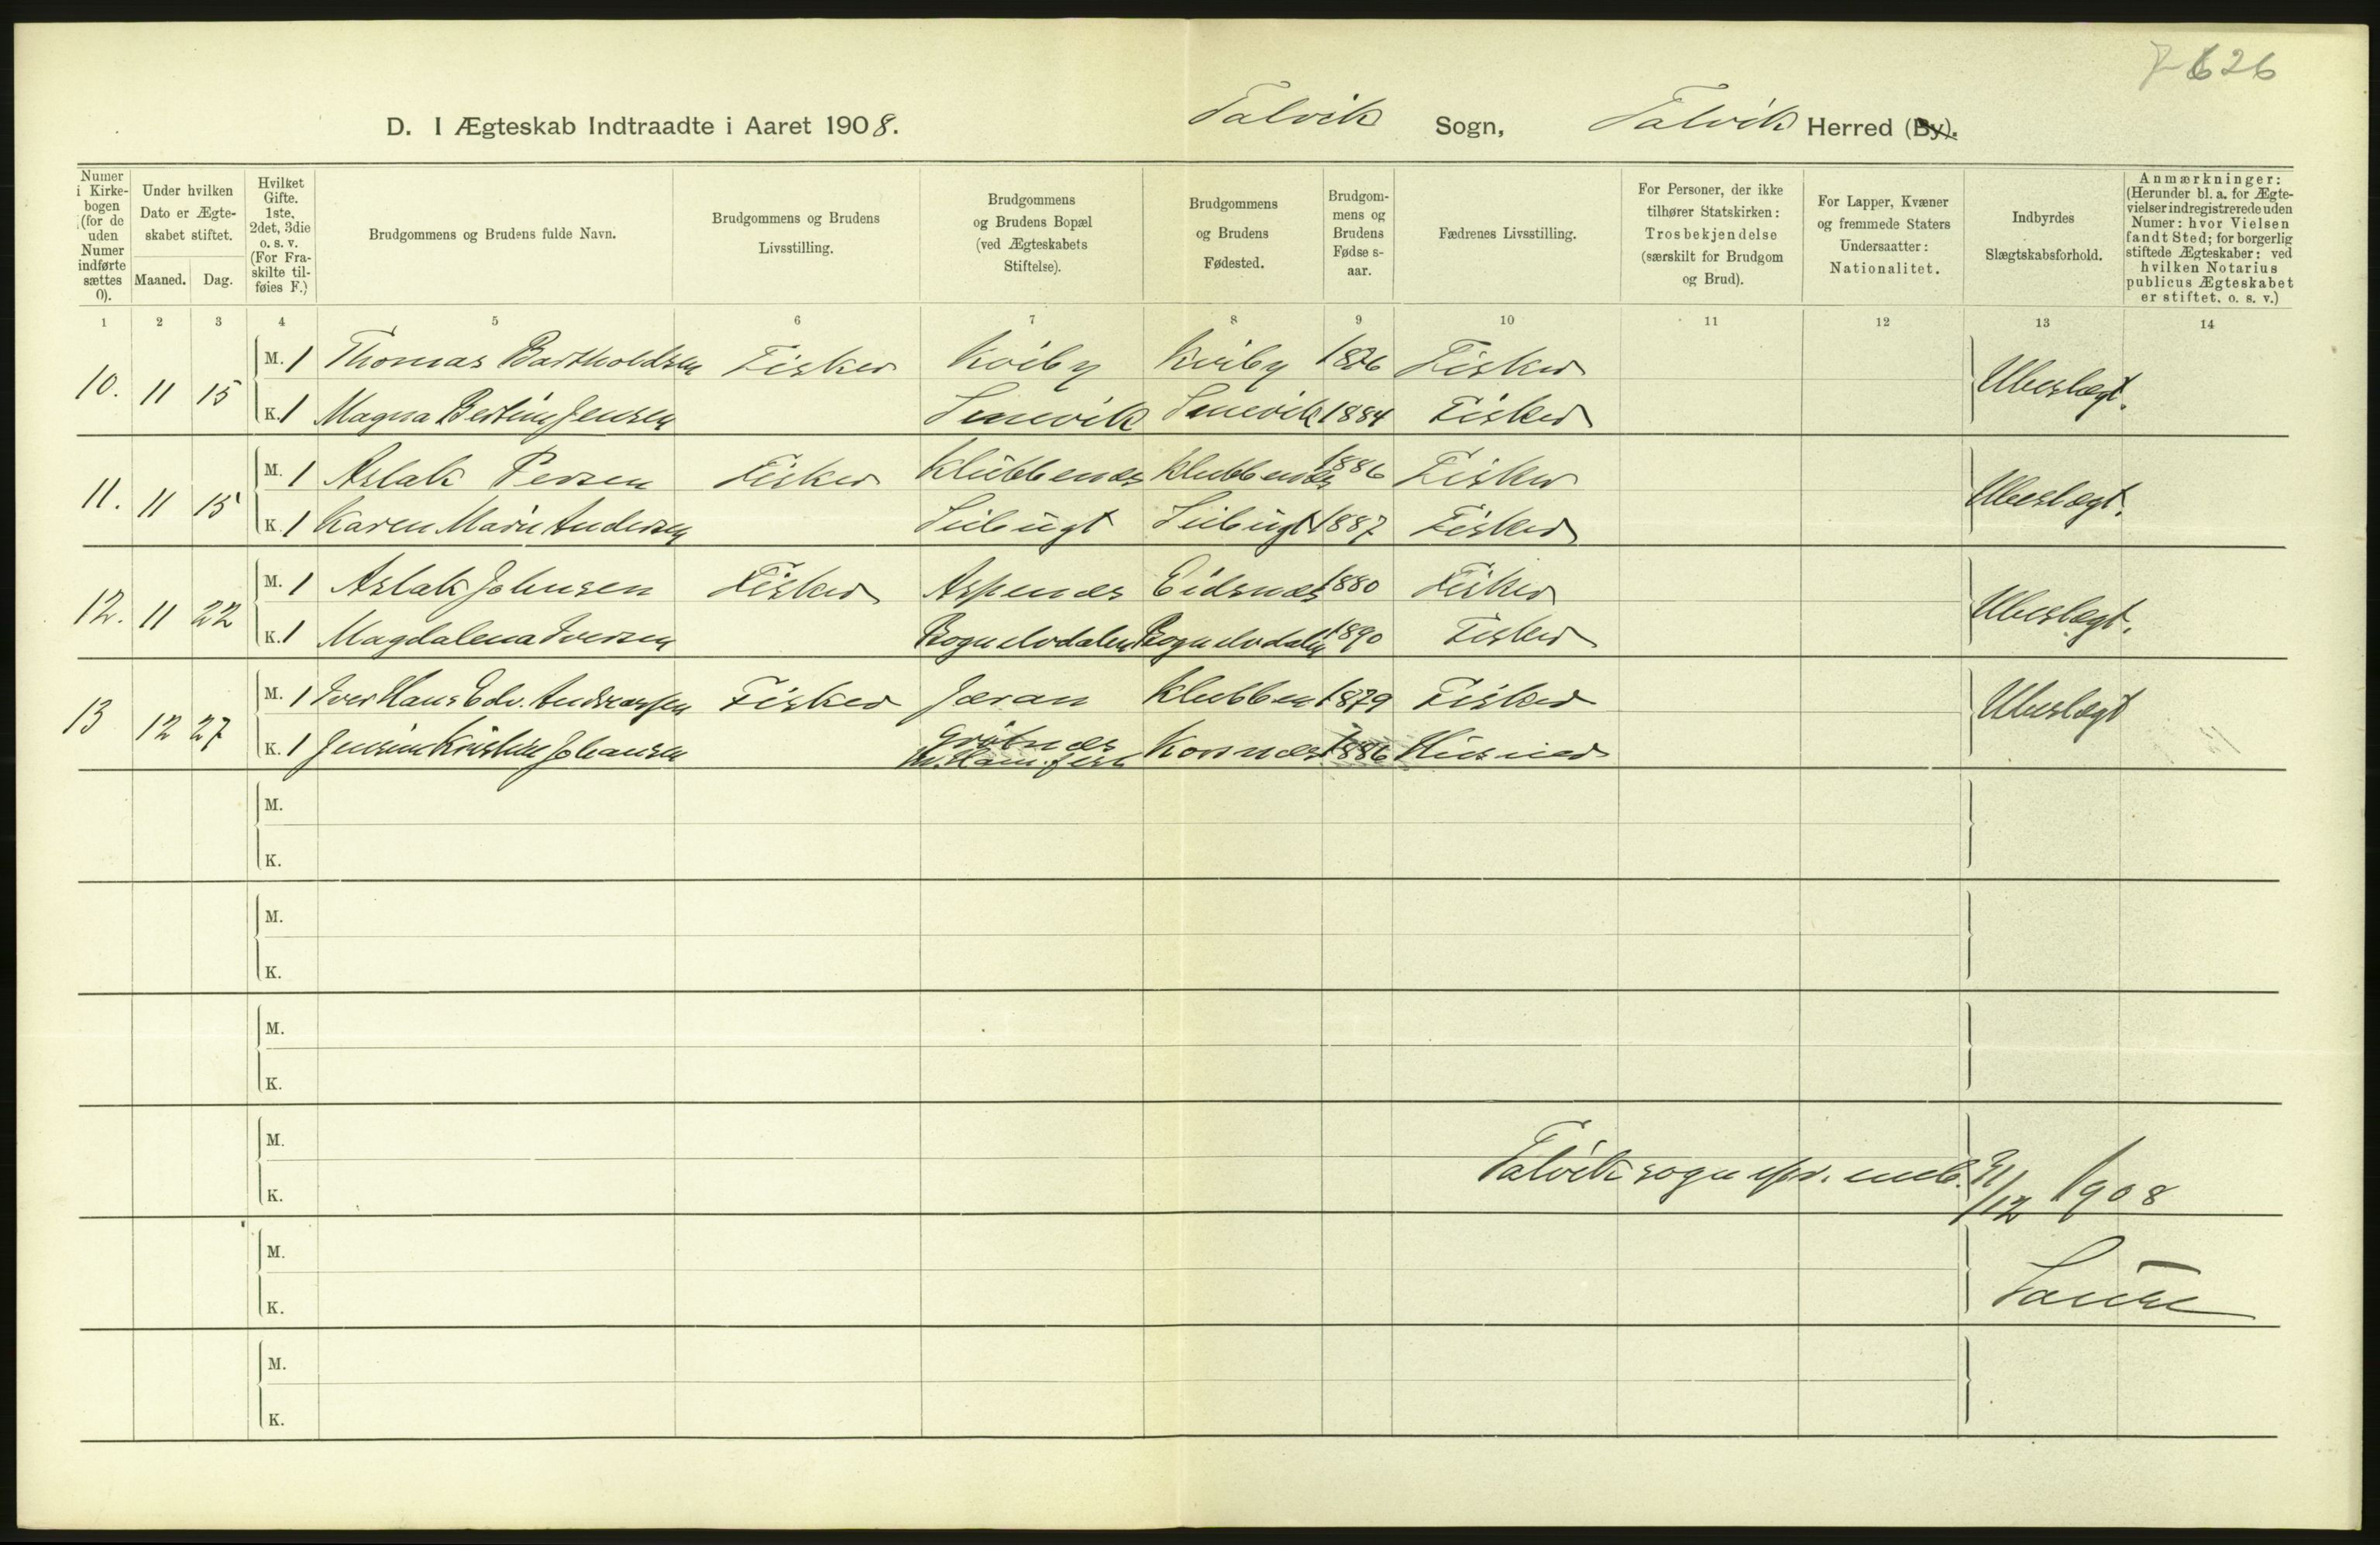 626
D. I Ægteskab Indtraadte i Aaret 1908. Talvik Sogn, Talvik Herred (By).
Numer i Kirkebogen (for de uden Numer indførte sættes 0).
Under hvilken Dato er Ægteskabet stiftet.
Maaned. Dag.
Hvilket Gifte. 1ste, 2det, 3die o. s. v. (For Fraskilte tilføies F.)
Brudgommens og Brudens fulde Navn.
Brudgommens og Brudens Livsstilling.
Brudgommens og Brudens Bopæl (ved Ægteskabets Stiftelse).
Brudgommens og Brudens Fødested.
Brudgommens og Brudens Fødselsaar.
Fædrenes Livsstilling.
For Personer, der ikke tilhører Statskirken: Trosbekjendelse (særskilt for Brudgom og Brud).
For Lapper, Kvæner og fremmede Staters Undersaatter: Nationalitet.
Indbyrdes Slægtskabsforhold.
Anmærkninger: (Herunder bl. a. for Ægtevielser indregistrerede uden Numer: hvor Vielsen fandt Sted; for borgerlig stiftede Ægteskaber: ved hvilken Notarius publicus Ægteskabet er stiftet, o. s. v.)
1 2 3 4 5 6 7 8 9 10 11 12 13 14
10. 11 15 M. 1 Thomas Bartholdsen Fisker Kviby Kviby 1876 Fisker Ubeslægt.
K. 1 Magna Bertine Jensen 1884 Fisker
11. 11 15 M. 1 Aslak Persen Fisker Klubbenæs Klubbenæs 1886 Fisker Ubeslægt.
K. 1 Karen Marie Andersen 1887 Fisker
12. 11 22 M. 1 Aslak Johnsen Fisker Aspenæs Eidsnæs 1880 Fisker Ubeslægt.
K. 1 Magdalena Iversen Bognelvdalen Bognelvdalen 1890 Fisker
13 12 27 M. 1 Iver Hans Edv. Andreassen Fisker Jæran Klubben 1879 Fisker Ubeslægt
K. 1 Jensine Kristine Johansen Grøtnæs Korsnæs 1886 Husmed
M.
K.
M.
K.
M.
K.
M.
Talvik sogn 31/12 1908
K.
M.
K.
M.
K.